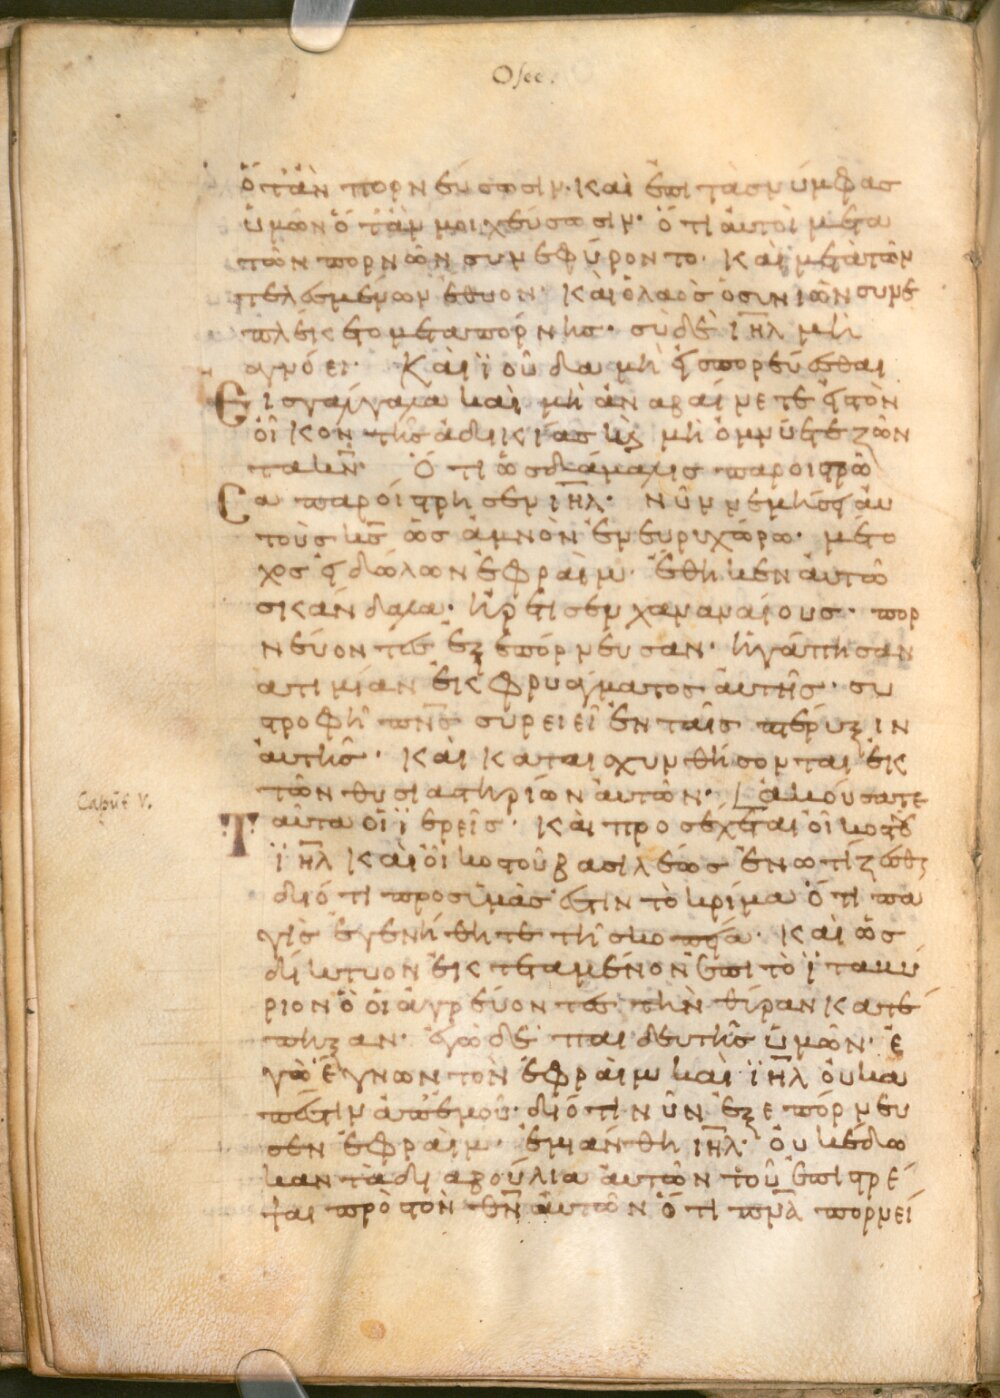 Osee.
ὅτἂν πορνεύσωσιν· καὶ ἐπι τὰσ νύμφας
ὑμῶν ὅτὰν μοιχεύσωσιν· ὅτι ἀυτοὶ μετα
τῶν πορνῶν συνεφύροντο· καὶ μετὰ τῶν
τελεσμένων ἔθυον· καὶ ὁ λαὸσ ὁ συνιῶν συνε
πλέκετο μετα πόρνησ· σὺ δὲ ϊηλ μὴ
αγνόει· Καὶ ϊούδα μὴ ἐσπορεύεσθαι
Εισ γάλγαλα καὶ μὴ ἀναβαίνετε ἐσ τὸν
ὀῖκον τῆσ ἀδικίασ κς μὴ ὀμνύετε ζῶν
τα κν· Ὅτι ὡσ δάμαλισ παροιστρῶ
Σα παροίστρησεν ιηλ· Νῦν νεμήσει ἀυ
τοὺσ κς ὡσ ἀμνὸν ἐν ευρυχώρω· μέτο
χοσ ἐιδώλων ἐφραὶμ· ἔθηκεν ἀυτῶ
σικάνδαλα· ἡρέτισεν χαναναίουσ· πορ
νεύοντεσ ἐξεπόρνευσαν· ἠγάπησαν
ατιμίαν ἐκ φρυάγματοσ ἀυτῆσ· συ
τροφὴ πνς συρειεῖ ἐν ταῖσ πτέρυξιν
ἀυτῆσ· καὶ καταισχυνθήσονται ἐκ
τῶν θυσιαστηρίων ἀυτῶν· ἀκούσατε
Caput V.
Ταῦτα οἱ ϊερεῖσ· καὶ προσέχεται οἶκοσ
ϊηλ καὶ ὀῖκοσ τοῦ βασιλέωσ ἐνωτίζεσθε
διότι προσ ϋμᾶσ ἐστιν τὸ κρίμα ὅτι πα
γὶσ ἐγενήθητε τῆ σκοπιᾶ· καὶ ὡσ
δίκτυον ἐκτεταμένον ἐπι τὸ ϊταβύ
ριον ὃ ὁι ἀγρεύοντεσ τὴν θήραν κατέ
πηξαν· ἐγὼ δὲ παιδευτὴσ ὑμῶν· ἐ
γὼ ἔγνων τὸν ἐφραὶμ καὶ ϊηλ ὀυκ α
πεστιν ἀπ' ἐμοῦ· διότι νῦν ἐξεπόρνευ
σεν ἐφραὶμ· ἐμιάνθη ιηλ· ὀυκ ἔδω
καν τὰ διαβούλια ἀυτῶν τοῦ ἐπιστρέ
ψαι πρὸσ τὸν θν ἀυτῶν ὅτι πνα πορνεί